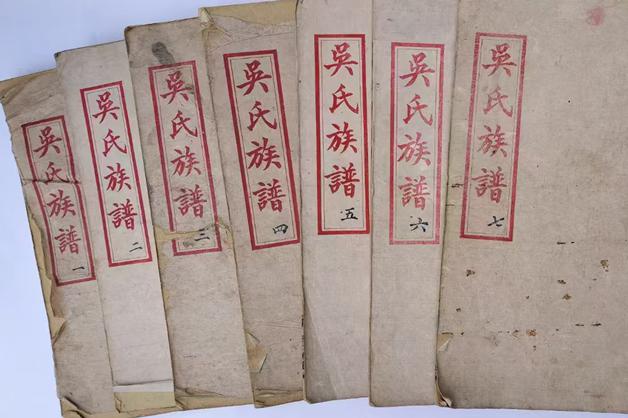 吳氏族譜 一
吳氏族譜 二
吳氏族譜 三
吳氏族譜 四
吳氏族譜 五
吳氏族譜 六
吳氏族譜 七